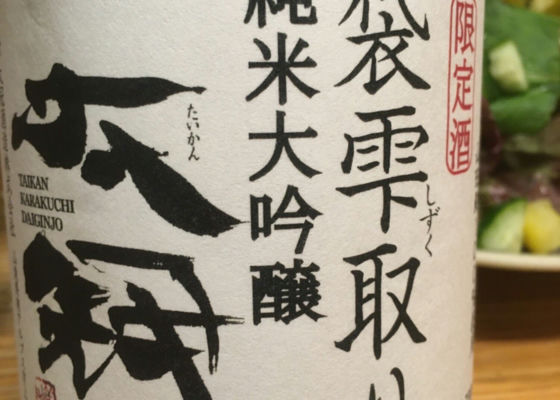 限定酒
袋雫取り
しずく
純米大吟醸
たいかん
大観
TAIKAN
KARAKUCHI
DAIGINJO